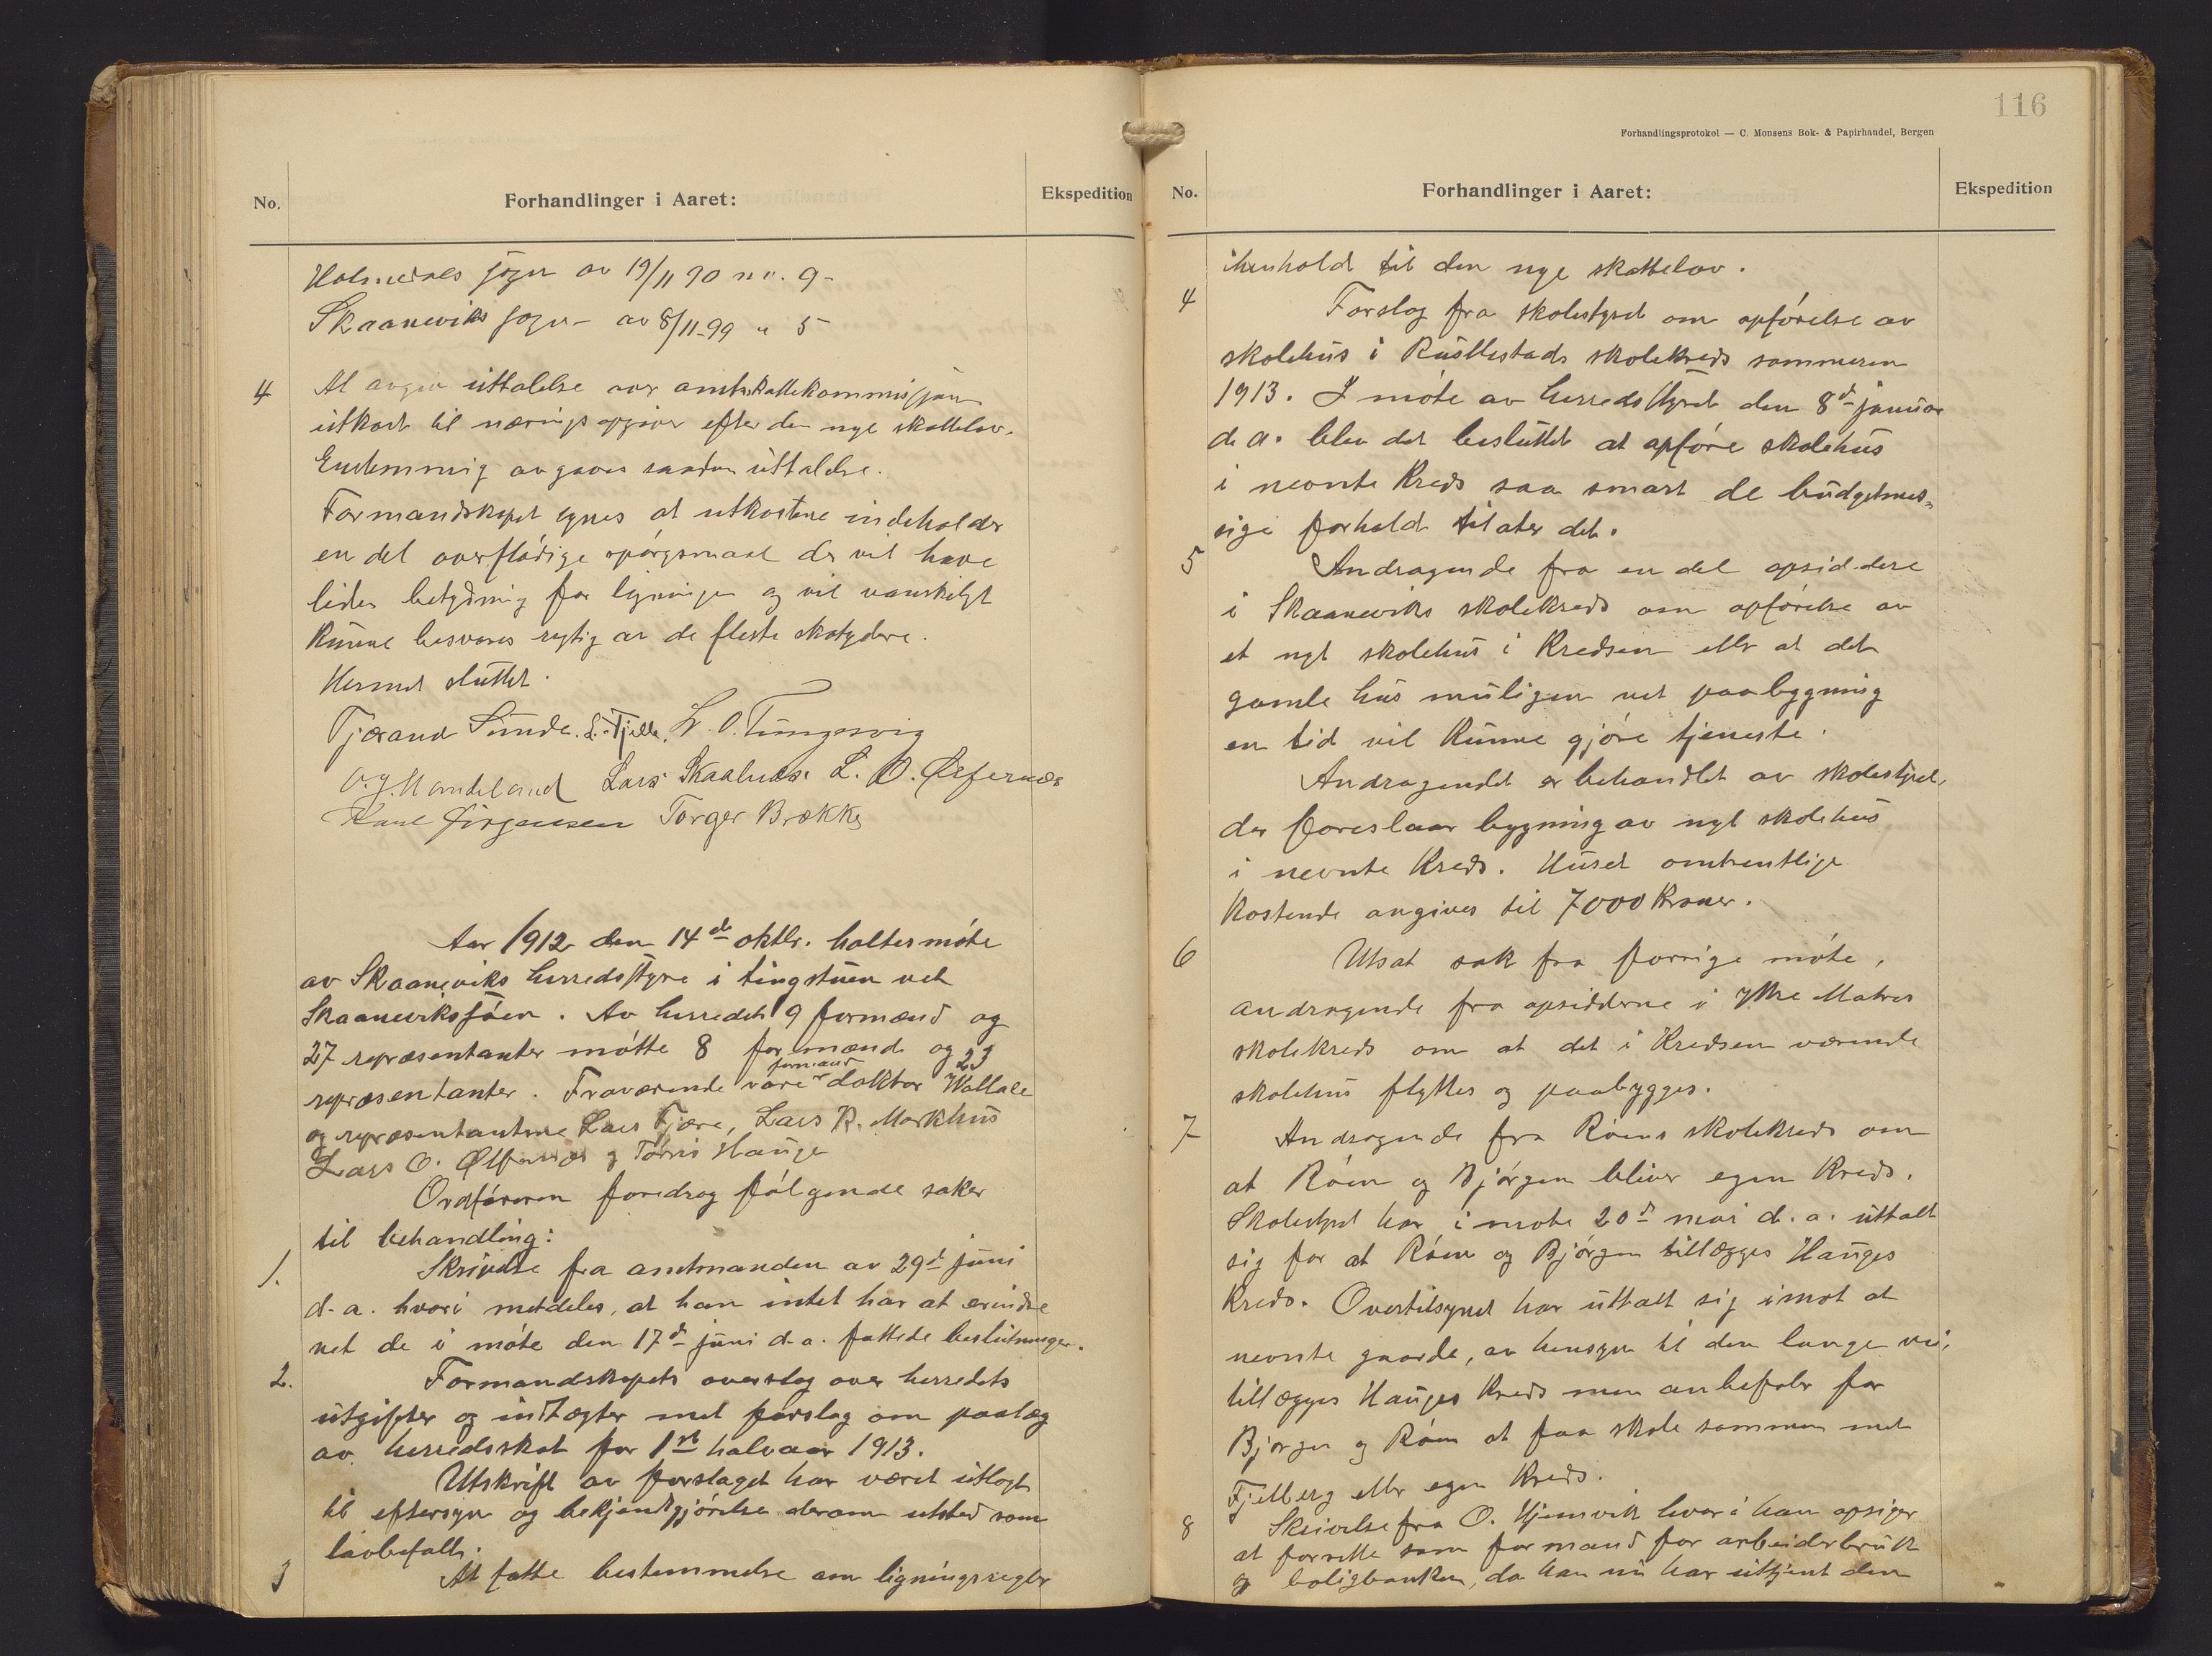 No.
Forhandlinger i Aaret:
Ekspedition
Holmedals sogn av 19/11 90 nr. 9-
Skaaneviks sogn - av 8/11-99 " 5
4
At avgive uttalelse over amtskattekommissjonens
utkast til næringsopgiver efter den nye skattelov.
Enstemmig avgaves saadan uttalelse.
Formandskapet synes at utkastene indeholder
en del overflødige spørgsmaal der vil have
liden betydning for ligningen og vil vanskeligt
kunne besvares rigtig av de fleste skatydere.
Hermed sluttet.
Tjærand Sunde. L. Fjelle. L. O. Tungesvig
O. J. Mandeland Lars Skaaluræ. L. O. Ølfernæs
Karl Jørgensen Torger Brække
Aar 1912 den 14de oktbr. holtes møte
av Skaaneviks herredsstyre i tingstuen ved
Skaaneviksjøen. Av herredets 9 formænd og
27 repræsentanter møtte 8 formænd og 23
repræsentanter. Fraværende vare formand doktor Wallace
og repræsentantene Lars Fjære, Lars R. Markhus
Lars O. Ølfernæs og Tørris Hauge
Ordføreren foredrog følgende saker
til behandling:
1.
Skrivelse fra amtmanden av 29d juni
d.a. hvori meddeles, at han intet har at erindre
ved de i møte den 17d juni d.a. fattede beslutninger.
2.
Formandskapets overslag over herredets
utgifter og indtægter med forslag om paalæg
av herredsskat for 1st halvaar 1913.
Utskrift av forslaget har været utlagt
til eftersyn og bekjendtgjørelse derom utsted som
lovbefalt.
3
At fatte bestemmelse om ligningsregler
116
Forhandlingsprotokol — C. Monsens Bok- & Papirhandel, Bergen
No.
Forhandlinger i Aaret:
Ekspedition
ihenhold til den nye skattelov.
4
Forslag fra skolestyret om opførelse av
skolehus i Rullestads skolekreds sommeren
1913. I møte av herredsstyret den 8d januar
d.a. blev det besluttet at opføre skolehus
i nevnte kreds saa snart de budgetmes-
sige forhold tilater det.
5
Andragende fra en del opsiddere
i Skaaneviks skolekreds om opførelse av
et nyt skolehus i kredsen eller at det
gamle hus muligens ved paabygning
en tid vil kunne gjøre tjeneste.
Andragendet er behandlet av skolestyret,
der foreslaar bygning av nyt skolehus
i nevnte kreds. Huset omtrentlige
kostende angives til 7000 kroner.
6
Utsat sak fra forrige møte,
andragende fra opsidderne i Ytre Matres
skolekreds om at det i kredsen værende
skolehus flyttes og paabygges.
7
Andragende fra Røens skolekreds om
at Røen og Bjørgen bliver egen kreds.
Skolestyret har i møte 20d mai d.a. uttalt
sig for at Røen og Bjørgen tillægges Hauges
kreds. Overtilsynet har uttalt sig imot at
nevnte gaarde, av hensyn til den lange vei,
tillægges Hauges kreds men anbefaler for
Bjørgen og Røen at faa skole sammen med
Fjelberg eller egen kreds.
8
Skrivelse fra O. Hjemsvik hvori han opsiger
at forrette som formand for arbeiderbruk
og boligbanken, da han nu har uttjent den